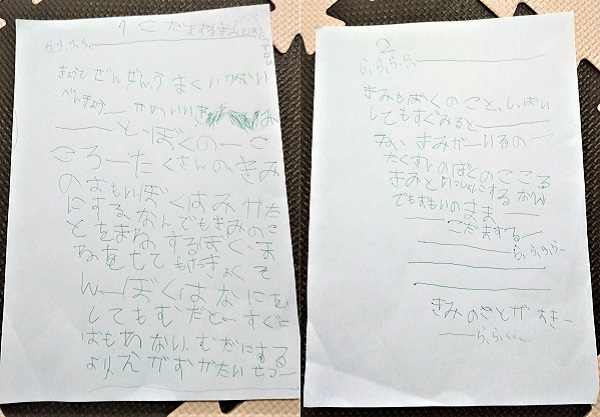 1 こだまするきみときに
ら、ら、ら、ら、
きょうも ぜんぜん、うまくいかない
べんきょうー かわいいき は
ーーと、ぼくのーこ
ころーたくさんの、きみ
の おもい、ぼくはみかた
にする、なんでもきみのこ
とをまねするぼく、ま
ねをしても けっきょくて
んーぼくはなにを
してもむだとーすぐに
はもわない、むだにする
より、えがおがたいせつー
2
ら、ら、ら、ら、ー
きみもぼくのこと、しっぱい
してもすぐみるとー
きみがーいるの
たくさんのぼくのこころ
きみといっしょにする なん
でもおもいのままー
こだまするー
ら、ら、ら、ら、ー
きみのことがすきー
ー ら、ら、